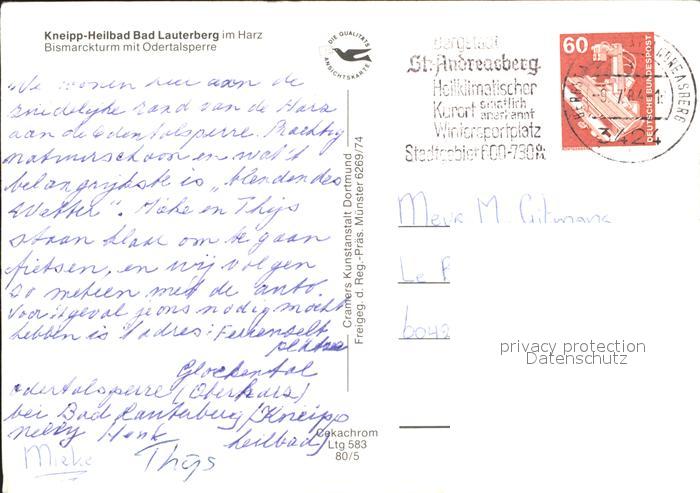 Kneipp-Heilbad Bad Lauterberg im Harz
Bismarckturm mit Odertalsperre
DIE QUALITÄTS
ANSICHTSKARTE
We wonen hier aan de
zuidelijke rand van de Harz
aan de Odertalsperre. Prachtig
natuurschoon en wat 't
belangrijkste is "blendendes
Wetter". Mieke en Thijs
staan klaar om te gaan
fietsen, en wij volgen
zo meteen met de auto.
Voor 't geval je ons nodig mocht
hebben is 't adres: Ferienzelt
platz
Glockental
Odertalsperre (Oberharz)
bei Bad Lauterberg (Kneipp
Nelly Henk heilbad)
Mieke Thijs
Cramers Kunstanstalt Dortmund
Freigeg. d. Reg.-Präs. Münster 6269/74
Cekachrom
Ltg 583
80/5
Bergstadt
St. Andreasberg
Heilklimatischer
Kurort staatlich
anerkannt
Wintersportplatz
Skigebiet 600-730
60
DEUTSCHE BUNDESPOST
ANDREASBERG
3424
M.
Le
privacy protection
Datenschutz